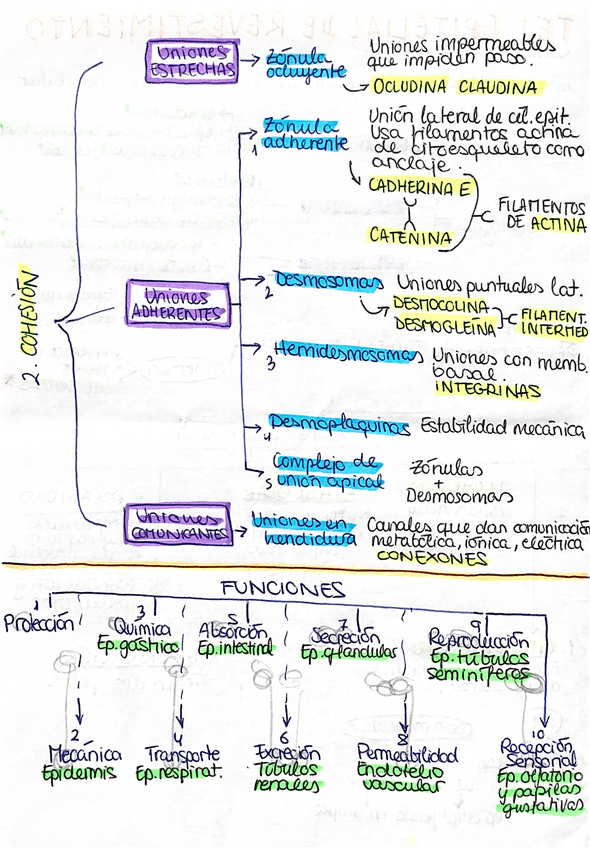 2. COHESIÓN
Uniones
ESTRECHAS
Zónula
ocluyente
Uniones impermeables
que impiden paso.
OCLUDINA CLAUDINA
Uniones
ADHERENTES
1
Zónula
adherente
Unión lateral de cél. epit.
Usa filamentos actina
de citoesqueleto como
anclaje.
CADHERINA E
CATENINA
FILAMENTOS
DE ACTINA
2
Desmosomas
Uniones puntuales lat.
DESMOCOLINA
DESMOGLEÍNA
FILAMENT.
INTERMED
3
Hemidesmosomas
Uniones con memb.
basal.
INTEGRINAS
4
Desmoplaquinas
Estabilidad mecánica
5
Complejo de
unión apical
Zónulas
+
Desmosomas
Uniones
COMUNICANTES
Uniones en
hendidura
Canales que dan comunicación
metabólica, iónica, eléctrica
CONEXONES
FUNCIONES
1
Protección
3
Química
Ep. gástrico
5
Absorción
Ep. intestinal
7
Secreción
Ep. glandular
9
Reproducción
Ep. túbulos
seminíferos
2
Mecánica
Epidermis
4
Transporte
Ep. respirat.
6
Excreción
Túbulos
renales
8
Permeabilidad
Endotelio
vascular
10
Recepción
Sensorial
Ep. olfatorio
y papilas
gustativas